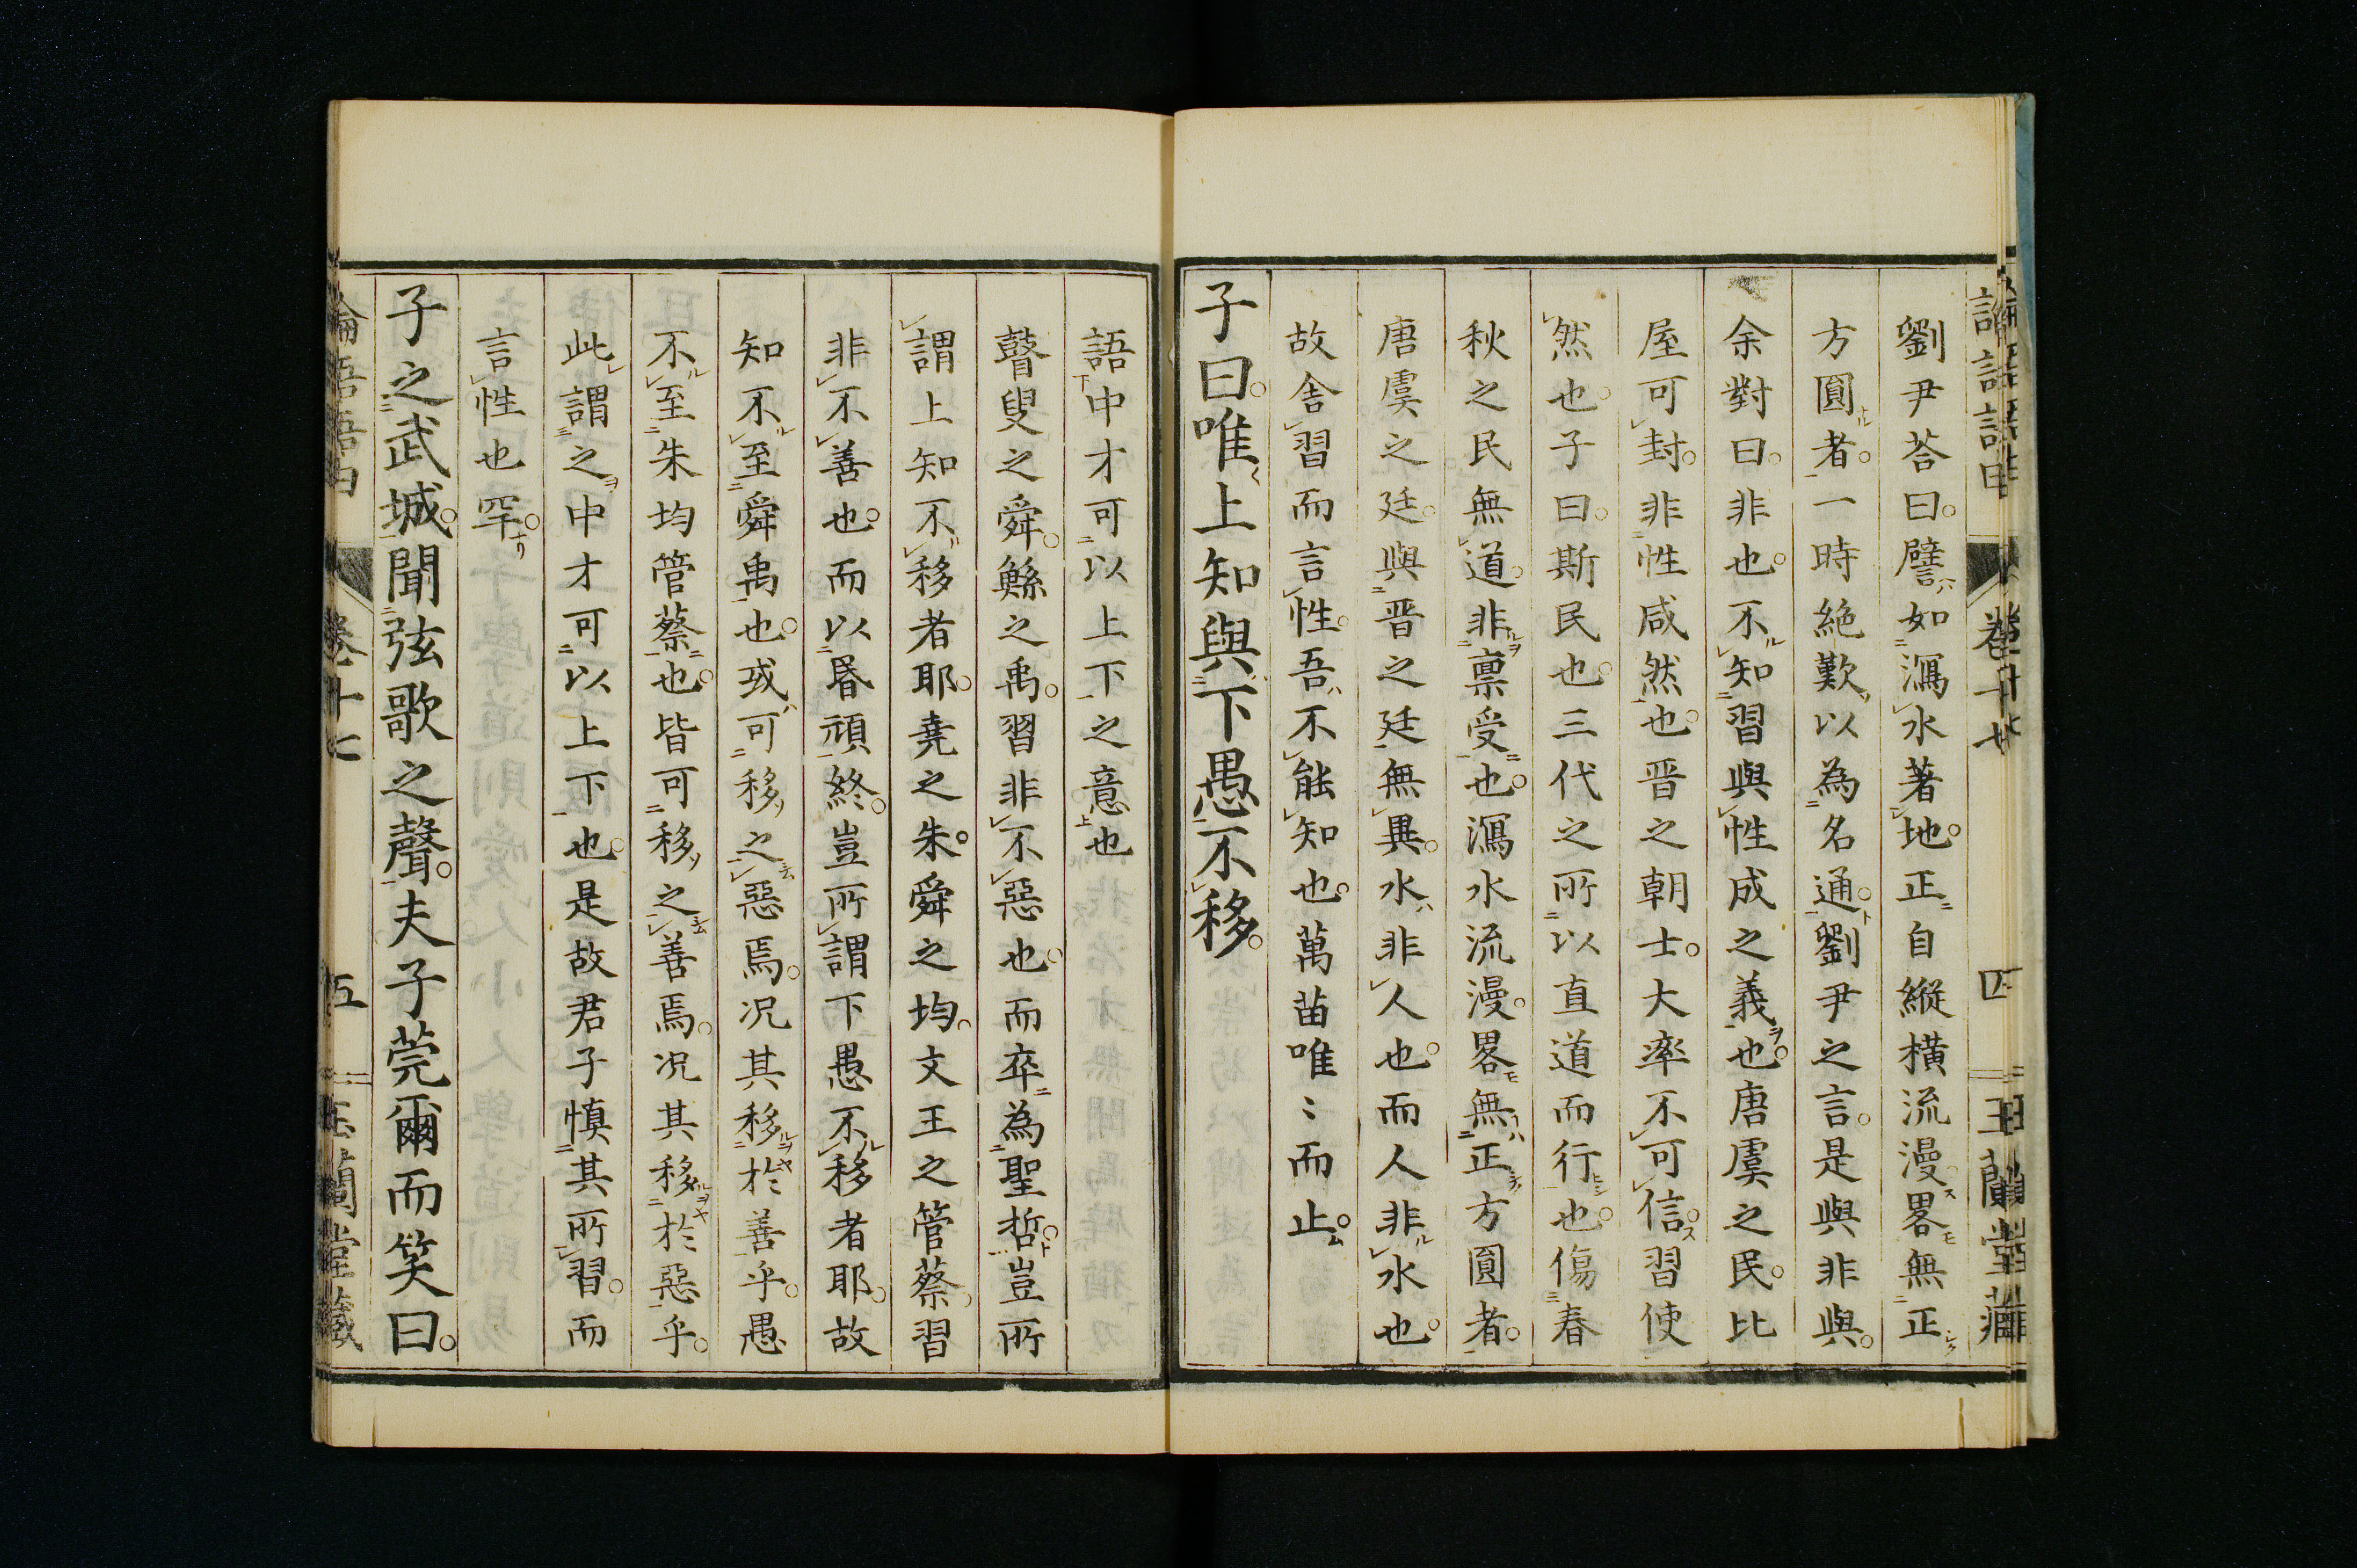 劉尹荅曰。譬如瀉水著地。正自縱橫流漫。畧無正
方圓者。一時絶歎。以為名通。劉尹之言。是與非與。
余對曰。非也。不知習與性成之義也。唐虞之民。比
屋可封。非性咸然也。晋之朝士。大率不可信。習使
然也。子曰。斯民也。三代之所以直道而行也。傷春
秋之民無道。非禀受也。瀉水流漫。畧無正方圓者。
唐虞之廷。與晋之廷無異。水非人也。而人非水也。
故舍習而言性。吾不能知也。萬苗唯〻而止。
子曰。唯上知與下愚不移。
語中才可以上下之意也
瞽叟之舜。鯀之禹。習非不惡也。而卒為聖哲。豈所
謂上知不移者耶。堯之朱。舜之均。文王之管蔡。習
非不善也。而以昏頑終。豈所謂下愚不移者耶。故
知不至舜禹也。或可移之惡焉。况其移於善乎。愚
不至朱均管蔡也。皆可移之善焉。况其移於惡乎。
此謂之中才可以上下也。是故君子慎其所習。而
言性也罕。
子之武城。聞弦歌之聲。夫子莞爾而笑曰。
論語語由 卷十七 五 玉蘭堂藏